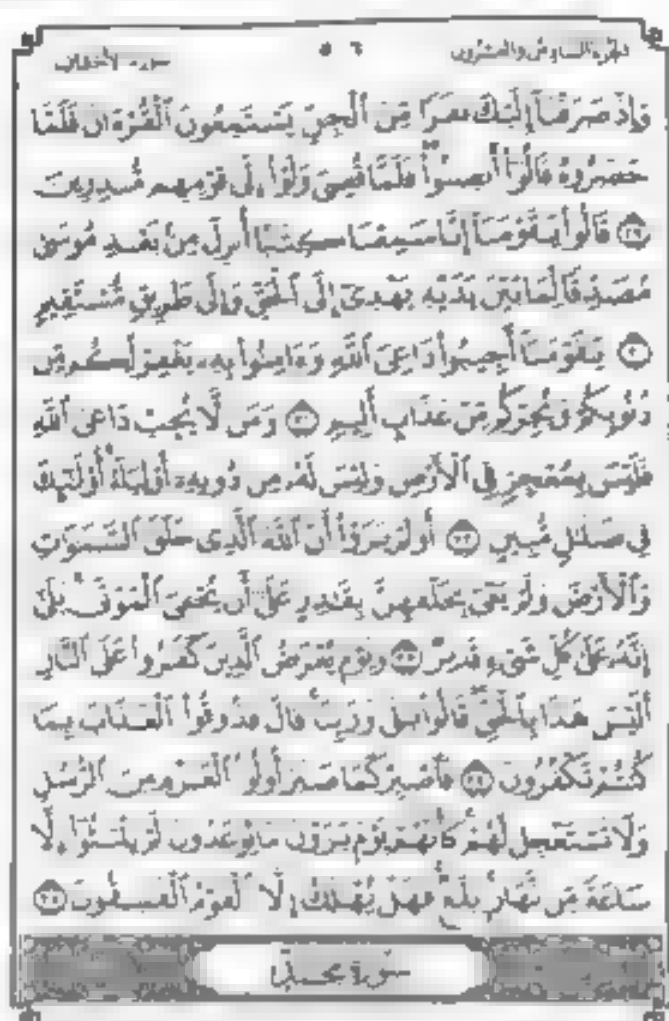 الجزء السادس والعشرون ٥٠٦ سورة الأحقاف
وَإِذْ صَرَفْنَآ إِلَيْكَ نَفَرًا مِّنَ ٱلْجِنِّ يَسْتَمِعُونَ ٱلْقُرْءَانَ فَلَمَّا
حَضَرُوهُ قَالُوٓا۟ أَنصِتُوا۟ فَلَمَّا قُضِىَ وَلَّوْا۟ إِلَىٰ قَوْمِهِم مُّنذِرِينَ
٢٩ قَالُوا۟ يَٰقَوْمَنَآ إِنَّا سَمِعْنَا كِتَٰبًا أُنزِلَ مِنۢ بَعْدِ مُوسَىٰ
مُصَدِّقًا لِّمَا بَيْنَ يَدَيْهِ يَهْدِىٓ إِلَى ٱلْحَقِّ وَإِلَىٰ طَرِيقٍ مُّسْتَقِيمٍ
٣٠ يَٰقَوْمَنَآ أَجِيبُوا۟ دَاعِىَ ٱللَّهِ وَءَامِنُوا۟ بِهِۦ يَغْفِرْ لَكُم مِّن
ذُنُوبِكُمْ وَيُجِرْكُم مِّنْ عَذَابٍ أَلِيمٍ ٣١ وَمَن لَّا يُجِبْ دَاعِىَ ٱللَّهِ
فَلَيْسَ بِمُعْجِزٍ فِى ٱلْأَرْضِ وَلَيْسَ لَهُۥ مِن دُونِهِۦٓ أَوْلِيَآءُ أُو۟لَٰٓئِكَ
فِى ضَلَٰلٍ مُّبِينٍ ٣٢ أَوَلَمْ يَرَوْا۟ أَنَّ ٱللَّهَ ٱلَّذِى خَلَقَ ٱلسَّمَٰوَٰتِ
وَٱلْأَرْضَ وَلَمْ يَعْىَ بِخَلْقِهِنَّ بِقَٰدِرٍ عَلَىٰٓ أَن يُحْۦِىَ ٱلْمَوْتَىٰ بَلَىٰٓ
إِنَّهُۥ عَلَىٰ كُلِّ شَىْءٍ قَدِيرٌ ٣٣ وَيَوْمَ يُعْرَضُ ٱلَّذِينَ كَفَرُوا۟ عَلَى ٱلنَّارِ
أَلَيْسَ هَٰذَا بِٱلْحَقِّ قَالُوا۟ بَلَىٰ وَرَبِّنَا قَالَ فَذُوقُوا۟ ٱلْعَذَابَ بِمَا
كُنتُمْ تَكْفُرُونَ ٣٤ فَٱصْبِرْ كَمَا صَبَرَ أُو۟لُوا۟ ٱلْعَزْمِ مِنَ ٱلرُّسُلِ
وَلَا تَسْتَعْجِل لَّهُمْ كَأَنَّهُمْ يَوْمَ يَرَوْنَ مَا يُوعَدُونَ لَمْ يَلْبَثُوٓا۟ إِلَّا
سَاعَةً مِّن نَّهَارٍۭ بَلَٰغٌ فَهَلْ يُهْلَكُ إِلَّا ٱلْقَوْمُ ٱلْفَٰسِقُونَ ٣٥
سورة محمد